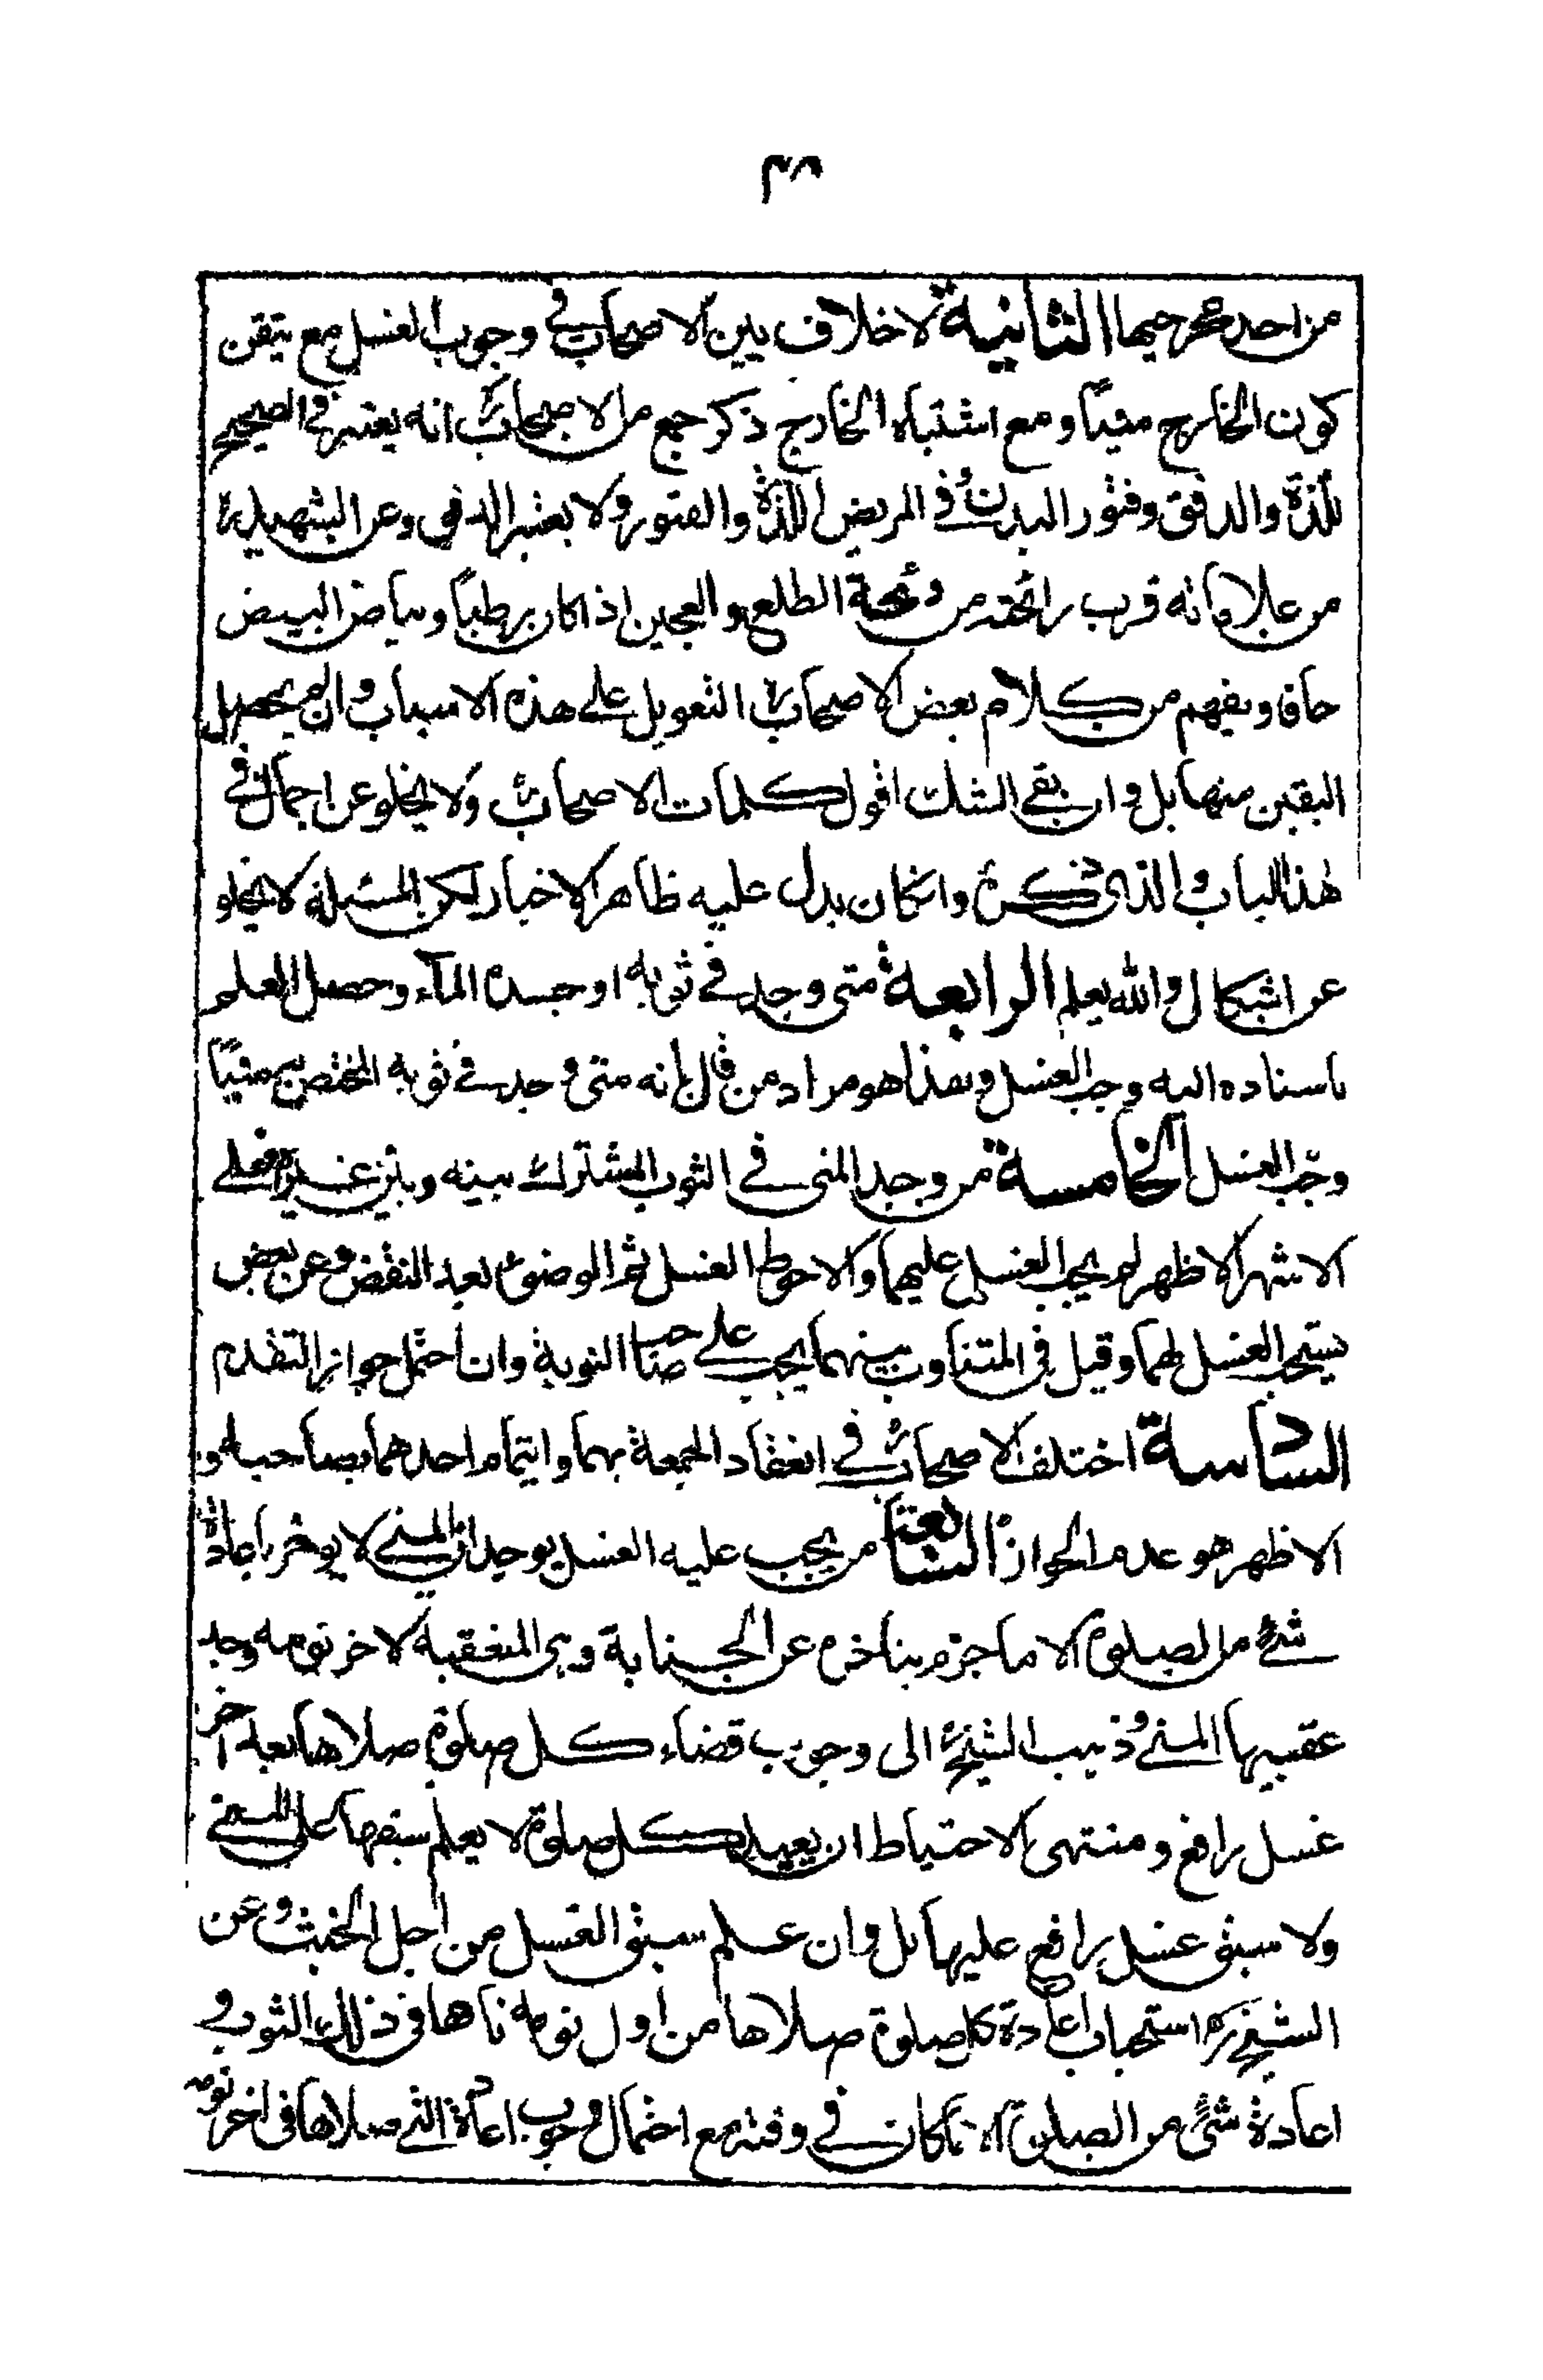 ٣٨
من احد مخرجيها الثانية لا خلاف بين الاصحاب في وجوب الغسل مع تيقن
كون الخارج منياً ومع اشتباه الخارج ذكر جمع من الاصحاب انه يعتبر في الصحيح
للذة والدفق وفتور البدن وفي المريض اللذة والفتور ولا يعتبر الدفق وعن الشهيد
من علاماته قرب رائحته من رائحة الطلع والعجين اذا كان رطباً وبياض البيض
جافا ويفهم من كلام بعض الاصحاب التعويل على هذه الاسباب وان لم يحصل
اليقين منها بل وان بقى الشك اقول كلمات الاصحاب ولا يخلو عن اجمال في
هذا الباب والذي ذكره وان كان يدل عليه ظاهر الاخبار لكن المسئلة لا يخلو
عن اشكال والله يعلم الرابعة متى وجد في ثوبه او جسده الماء وحصل العلم
باسناده اليه وجب الغسل وهذا هو مراد من قال بانه متى وجد في ثوبه المختص به منياً
وجب الغسل الخامسة من وجد المنى في الثوب المشترك بينه وبين غيره فعلى
الاشهر الاظهر لم يجب الغسل عليهما والاحوط الغسل ثم الوضوء بعد النقض وعن بعض
يستحب الغسل لهما وقيل في المتناوب بينهما يجب على صاحب النوبة وان احتمل جواز التقدم
السادسة اختلف الاصحاب في انعقاد الجمعة بهما وايتمام احدهما بصاحبه و
الاظهر هو عدم الجواز السابعة من يجب عليه الغسل بوجدان المني لا يؤمر باعادة
شئ من الصلوة الا ما جزم بتاخره عن الجنابة وهى المتعقبة لاخر نومه وجد
عقيبها المنى وذهب الشيخ الى وجوب قضاء كل صلوة صلاها بعد اخر
غسل رافع ومنتهى الاحتياط ان يعيد كل صلوة لا يعلم سبقها على المنى
ولا سبق غسل رافع عليها بل وان علم سبق الغسل من اجل الخبث وعن
الشيخ استحباب اعادة كل صلوة صلاها من اول نومه نامها في ذلك الثوب و
اعادة شئ من الصلوة ان كان في وقته مع احتمال وجوب اعادة التى صلاها في اخر نومه